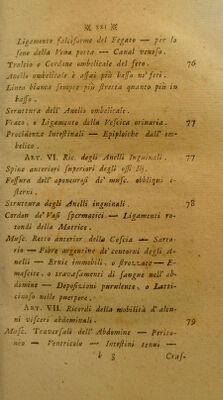 XXI
Ligamento falciforme del Fegato — per lo
seno della Vena porta — Canal venoso.
Tralcio o Cordone ombelicale del feto. 76
Anello ombelicale è assai più basso ne' feti.
Linea bianca sempre più stretta quanto più in
basso.
Struttura dell' Anello ombelicale.
Uraco, o Ligamento della Vescica orinaria. 77
Procidenze Intestinali — Epiploiche dall' om-
belico.
ART. VI. Ric. degli Anelli Inguinali. 77
Spine anteriori superiori degli ossi Ilj.
Fessura dell' aponeurosi de' musc. obbliqui e-
sterni.
Struttura degli Anelli inguinali. 78
Cordon de' Vasi spermatici — Ligamenti ro-
tondi della Matrice.
Musc. Retto anterior della Coscia — Sarto-
rio — Fibre argentine de' contorni degli A-
nelli — Ernie immobili, o strozzate — E-
masceite, o travasamenti di sangue nell' ab-
domine — Deposizioni purulente, o Latti-
cinose nelle puerpere.
ART. VII. Ricordi della mobilità d' alcu-
ni visceri abdominali. 79
Musc. Traversali dell' Abdomine — Perito-
nèo — Ventricolo — Intestini tenui —
b 3 Cras-